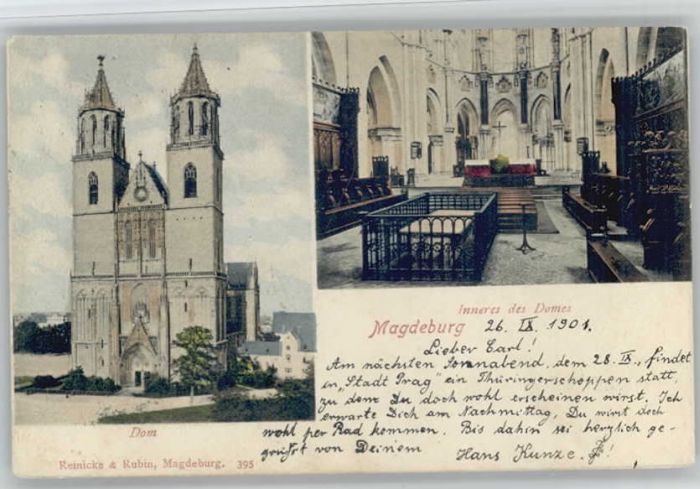 Inneres des Domes
Magdeburg 26. IX. 1901.
Lieber Carl!
Am nächsten Sonnabend, dem 28. IX., findet
in „Stadt Prag" ein Thüringerschoppen statt,
zu dem Du doch wohl erscheinen wirst. Ich
erwarte Dich am Nachmittag, Du wirst doch
wohl per Rad kommen. Bis dahin sei herzlich ge-
grüßt von Deinem
Hans Kunze.
Dom
Reinicke & Rubin, Magdeburg. 395